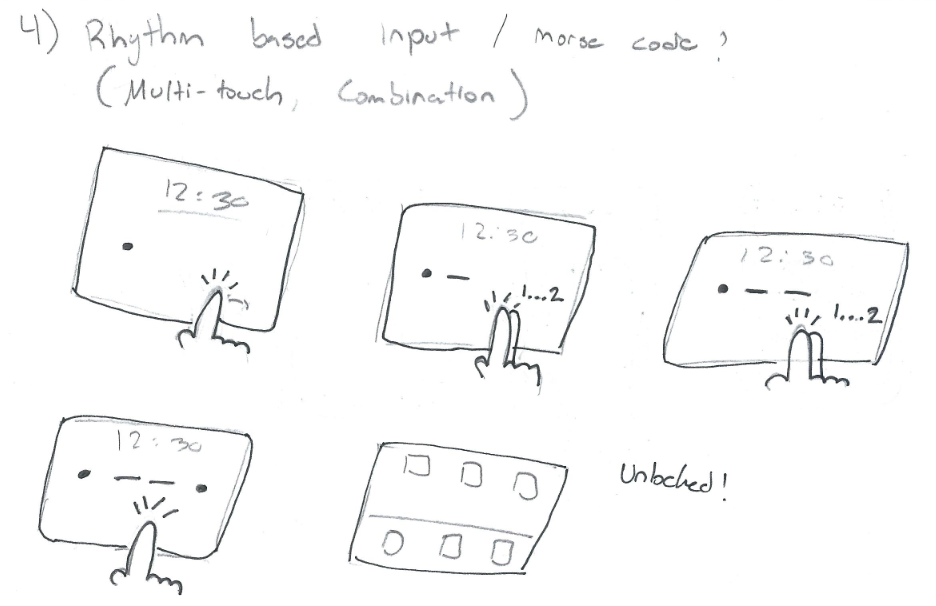 4) Rhythm based input / morse code?
(Multi-touch, Combination)
12:30
12:30
1...2
12:30
1...2
12:30
Unlocked!